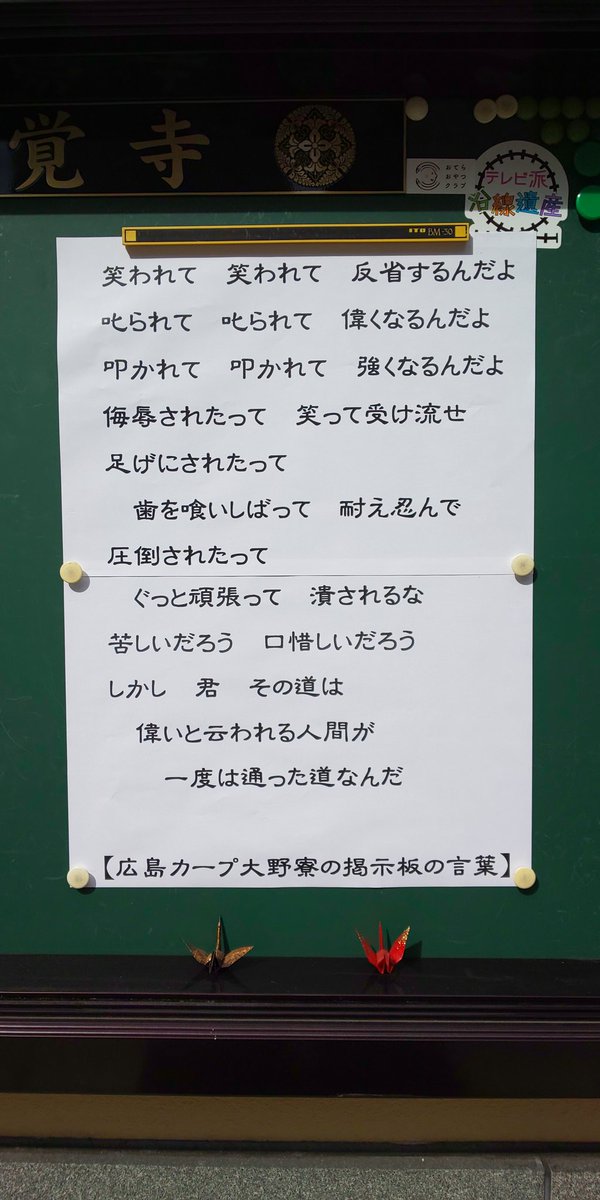 覚寺
おてら
おやつ
クラブ
テレビ派
沿線遺産
ITO BM-30
笑われて　笑われて　反省するんだよ
叱られて　叱られて　偉くなるんだよ
叩かれて　叩かれて　強くなるんだよ
侮辱されたって　笑って受け流せ
足げにされたって
歯を喰いしばって　耐え忍んで
圧倒されたって
ぐっと頑張って　潰されるな
苦しいだろう　口惜しいだろう
しかし　君　その道は
偉いと云われる人間が
一度は通った道なんだ
【広島カープ大野寮の掲示板の言葉】